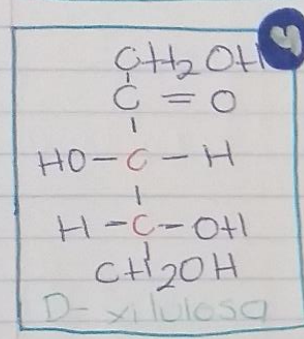 4
CH2OH
C = O
HO-C-H
H-C-OH
CH2OH
D-xilulosa